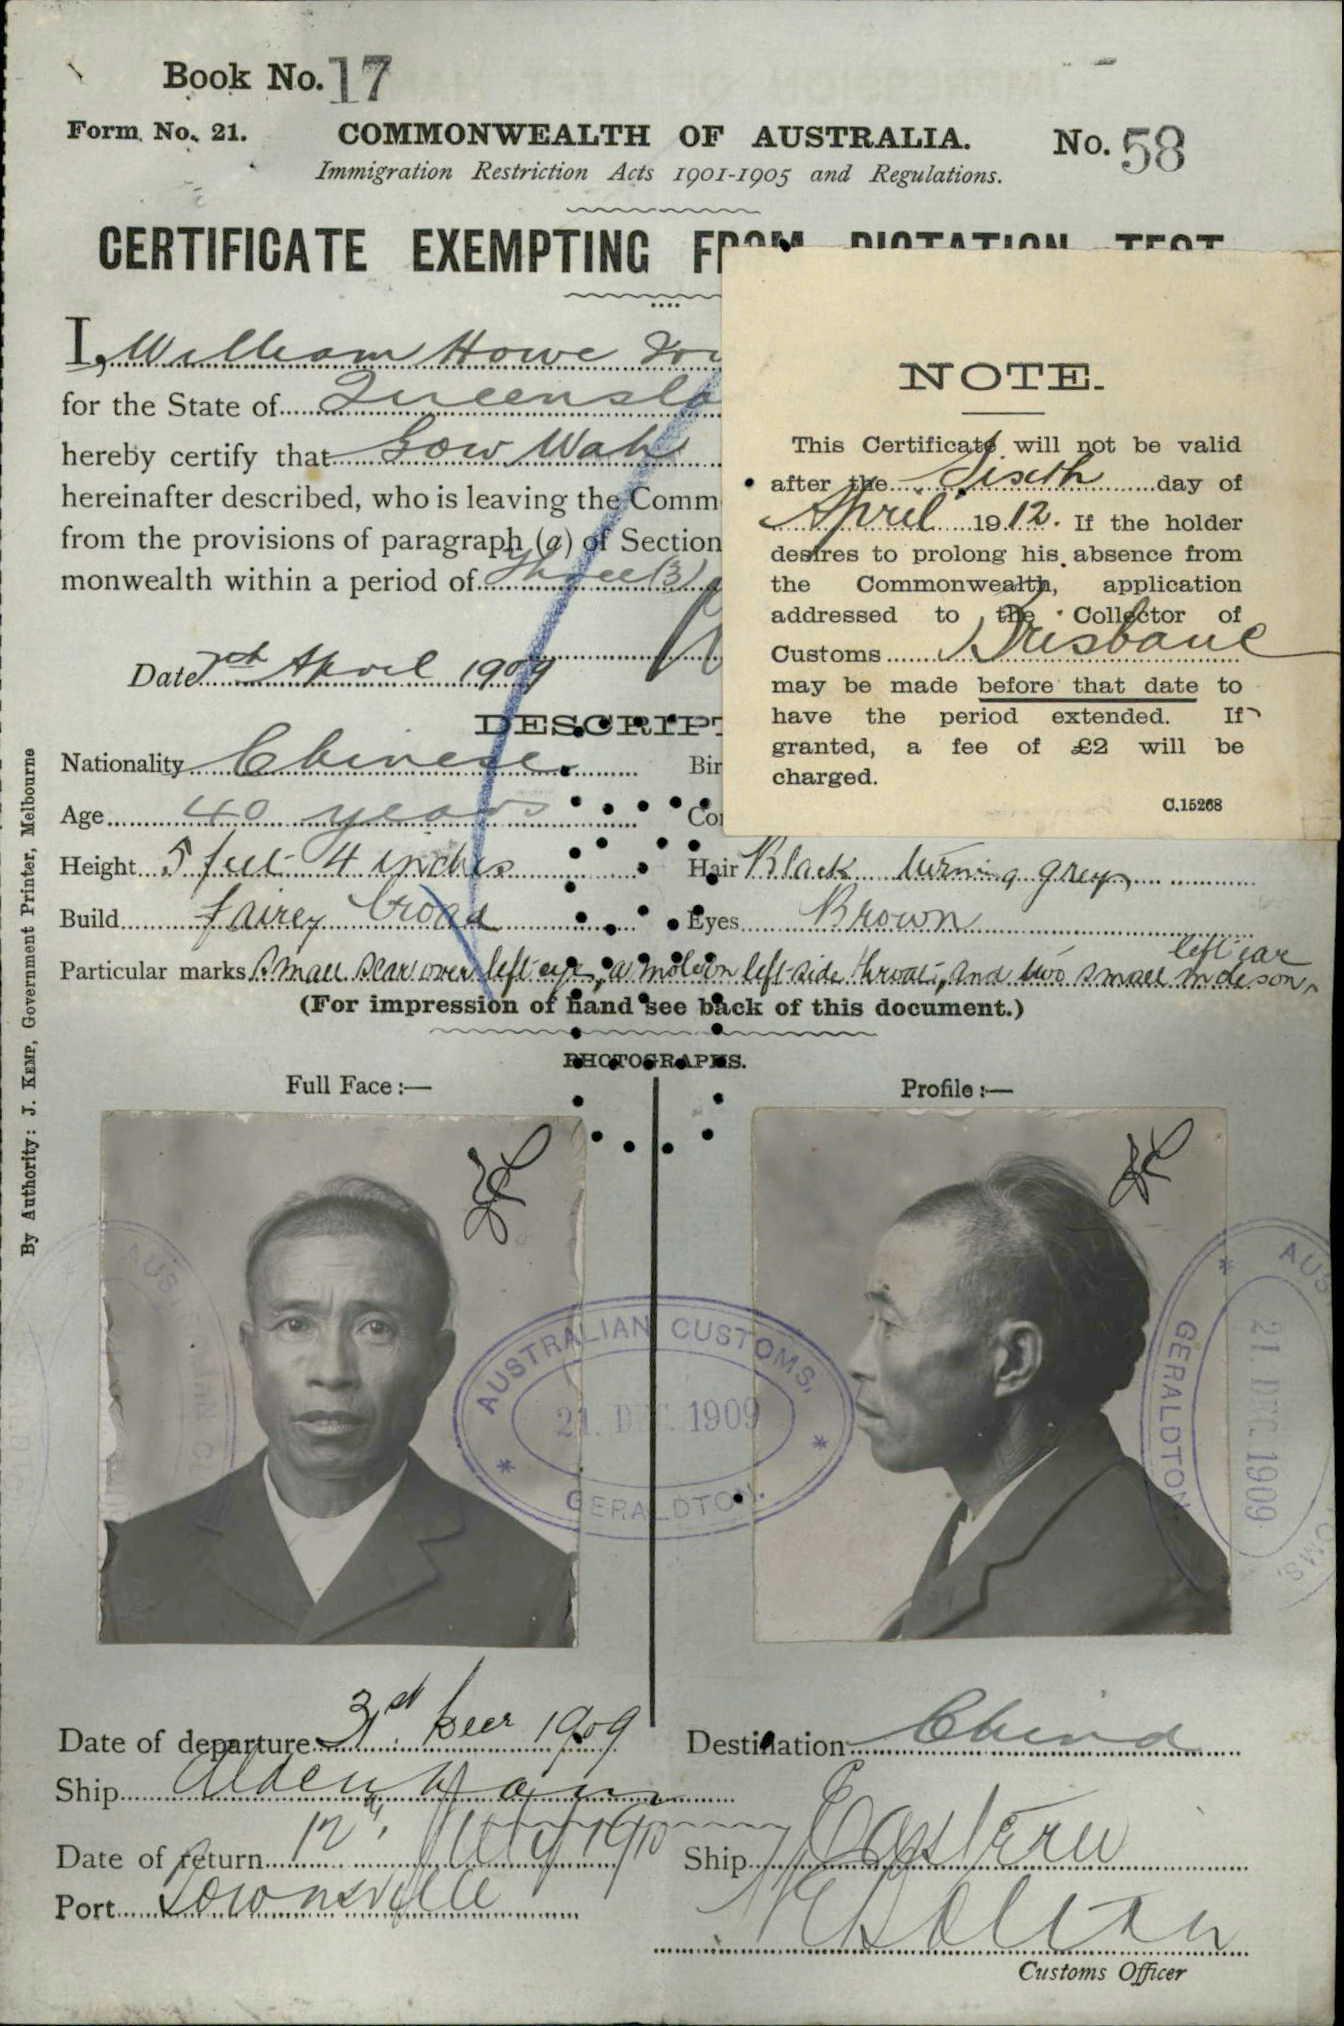 Book No. 17
Form No. 21. COMMONWEALTH OF AUSTRALIA. No. 58
Immigration Restriction Acts 1901-1905 and Regulations.
CERTIFICATE EXEMPTING FROM DICTATION TEST
I, William Howe
for the State of
hereby certify that Gow Wah
hereinafter described, who is leaving the Comm
from the provisions of paragraph (a) of Section
monwealth within a period of three (3)
Date 7th April 1909
NOTE.
This Certificate will not be valid
after the Sixth day of
April 1912. If the holder
desires to prolong his absence from
the Commonwealth, application
addressed to the Collector of
Customs Brisbane
may be made before that date to
have the period extended. If
granted, a fee of £2 will be
charged.
C.15268
DESCRIPT
Nationality Chinese. Bir
Age 40 years
Height 5 feet 4 inches Hair Black turning grey
Build fairly broad Eyes Brown
Particular marks Small scar over left eye, a mole on left side throat, and two small moles on left ear
(For impression of hand see back of this document.)
PHOTOGRAPHS.
Full Face:— Profile:—
AUSTRALIAN CUSTOMS.
21. DEC. 1909
GERALDTON.
AUS
GERALDTON
21. DEC 1909
By Authority: J. KEMP, Government Printer, Melbourne
Date of departure 31st Decr 1909 Destination China
Ship Aldenham
Date of return 12th July 1910 Ship Eastern
Port Townsville
Customs Officer